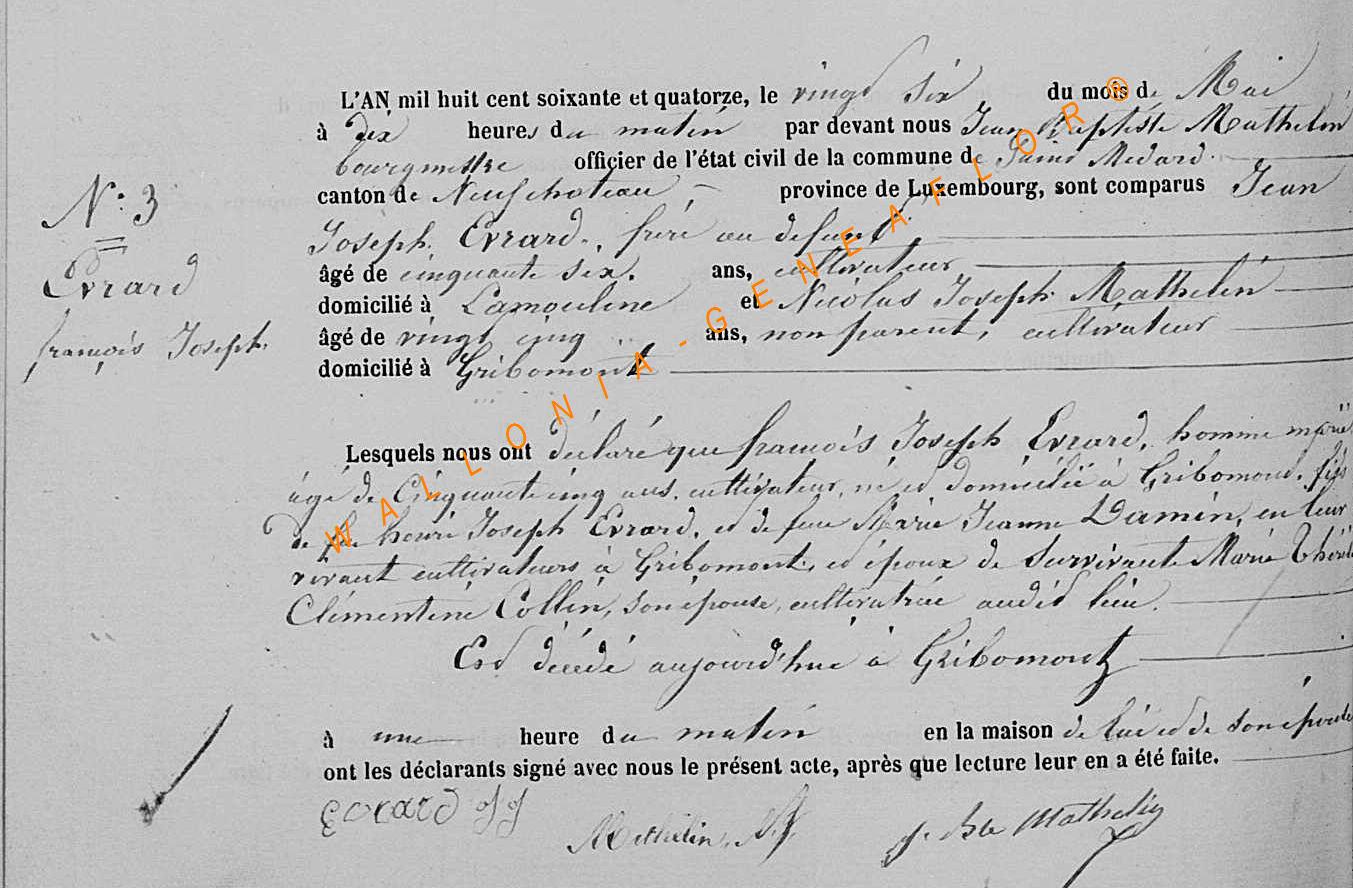 L'AN mil huit cent soixante et quatorze, le vingt six du mois de Mai
à dix heures du matin par devant nous Jean Baptiste Mathelin
bourgmestre officier de l'état civil de la commune de Saint Medard
canton de Neufchateau province de Luxembourg, sont comparus Jean
Joseph Evrard, frère au defunt
âgé de cinquante six. ans, cultivateur
domicilié à Lamouline et Nicolas Joseph Mathelin
âgé de vingt cinq ans, non parent, cultivateur
domicilié à Gribomont
N° 3
Evrard
françois Joseph.
Lesquels nous ont déclaré que françois Joseph Evrard, homme marié
âgé de Cinquante cinq ans, cultivateur, né et domicilié à Gribomont, fils
de feu henri Joseph Evrard, et de feue Marie Jeanne Damin, en leur
vivant cultivateurs à Gribomont, et époux de Survivante Marie Thérèse
Clémentine Collin, son épouse, cultivatrice audit lieu.
Est décédé aujourd'hui à Gribomont
à une heure du matin en la maison de lui et de son épouse
ont les déclarants signé avec nous le présent acte, après que lecture leur en a été faite.
Evrard JJ
Mathelin, N.J.
J. Bte Mathelin
WALLONIA-GENEAFLOR®